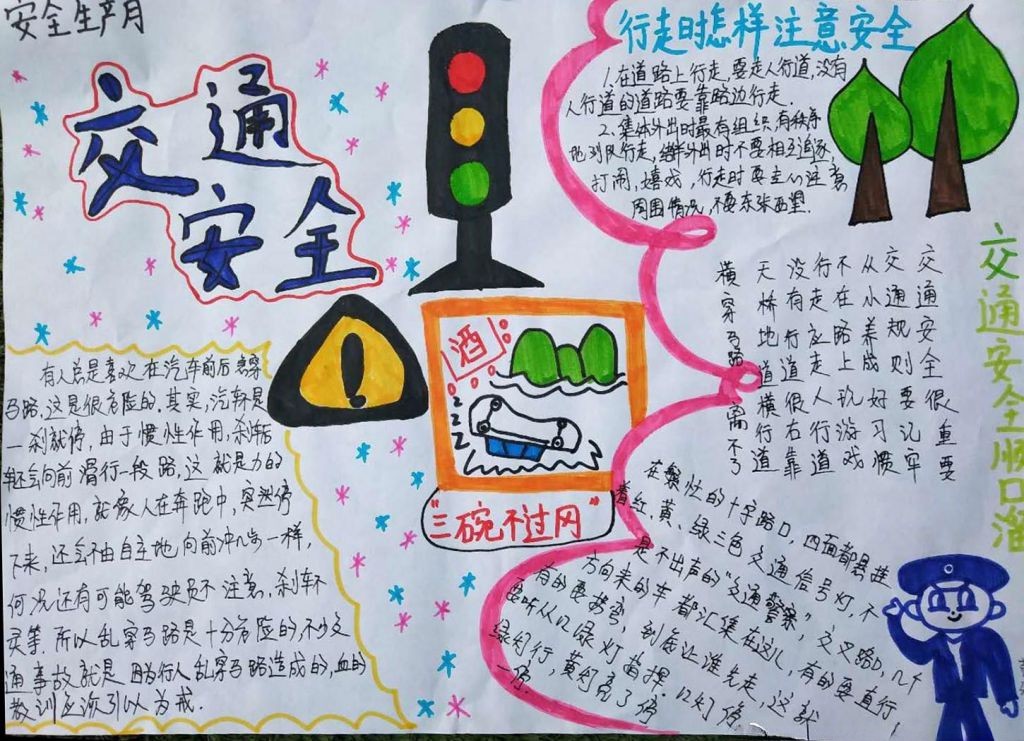 安全生产月
交通
安全
行走时怎样注意安全
1.在道路上行走,要走人行道,没有
人行道的道路要靠路边行走.
2.集体外出时最有组织,有秩序
地列队行走,结伴外出时不要相互追逐,
打闹、嬉戏,行走时要主心注意
周围情况,不要东张西望.
交通安全顺口溜
交通安全很重要
交通规则要记牢
从小养成好习惯
不在路上玩游戏
行走应走人行道
没有行道很右靠
天桥地道横行道
横穿马路需不了
有人总是喜欢在汽车前后急穿
马路,这是很危险的.其实,汽车不是
一刹就停,由于惯性作用,刹车后
车还会向前滑行一段路,这就是力的
惯性作用,就像人在奔跑中,突然停
下来,还会不由自主地向前冲几步一样,
何况还有可能驾驶员不注意,刹车不
灵等.所以乱穿马路是十分危险的,不少交
通事故就是因为行人乱穿马路造成的,血的
教训应该引以为戒.
酒
zzzz
“三碗不过网”
在繁忙的十字路口,四面都悬挂
着红、黄、绿三色交通信号灯,不
是不出声的“交通警察”,交叉路口,几个
方向来的车都汇集在这儿,有的要直行,
有的要拐弯,到底让谁先走,这就
要听从红绿灯指挥.红灯停、
绿灯行,黄灯亮了停
一停.